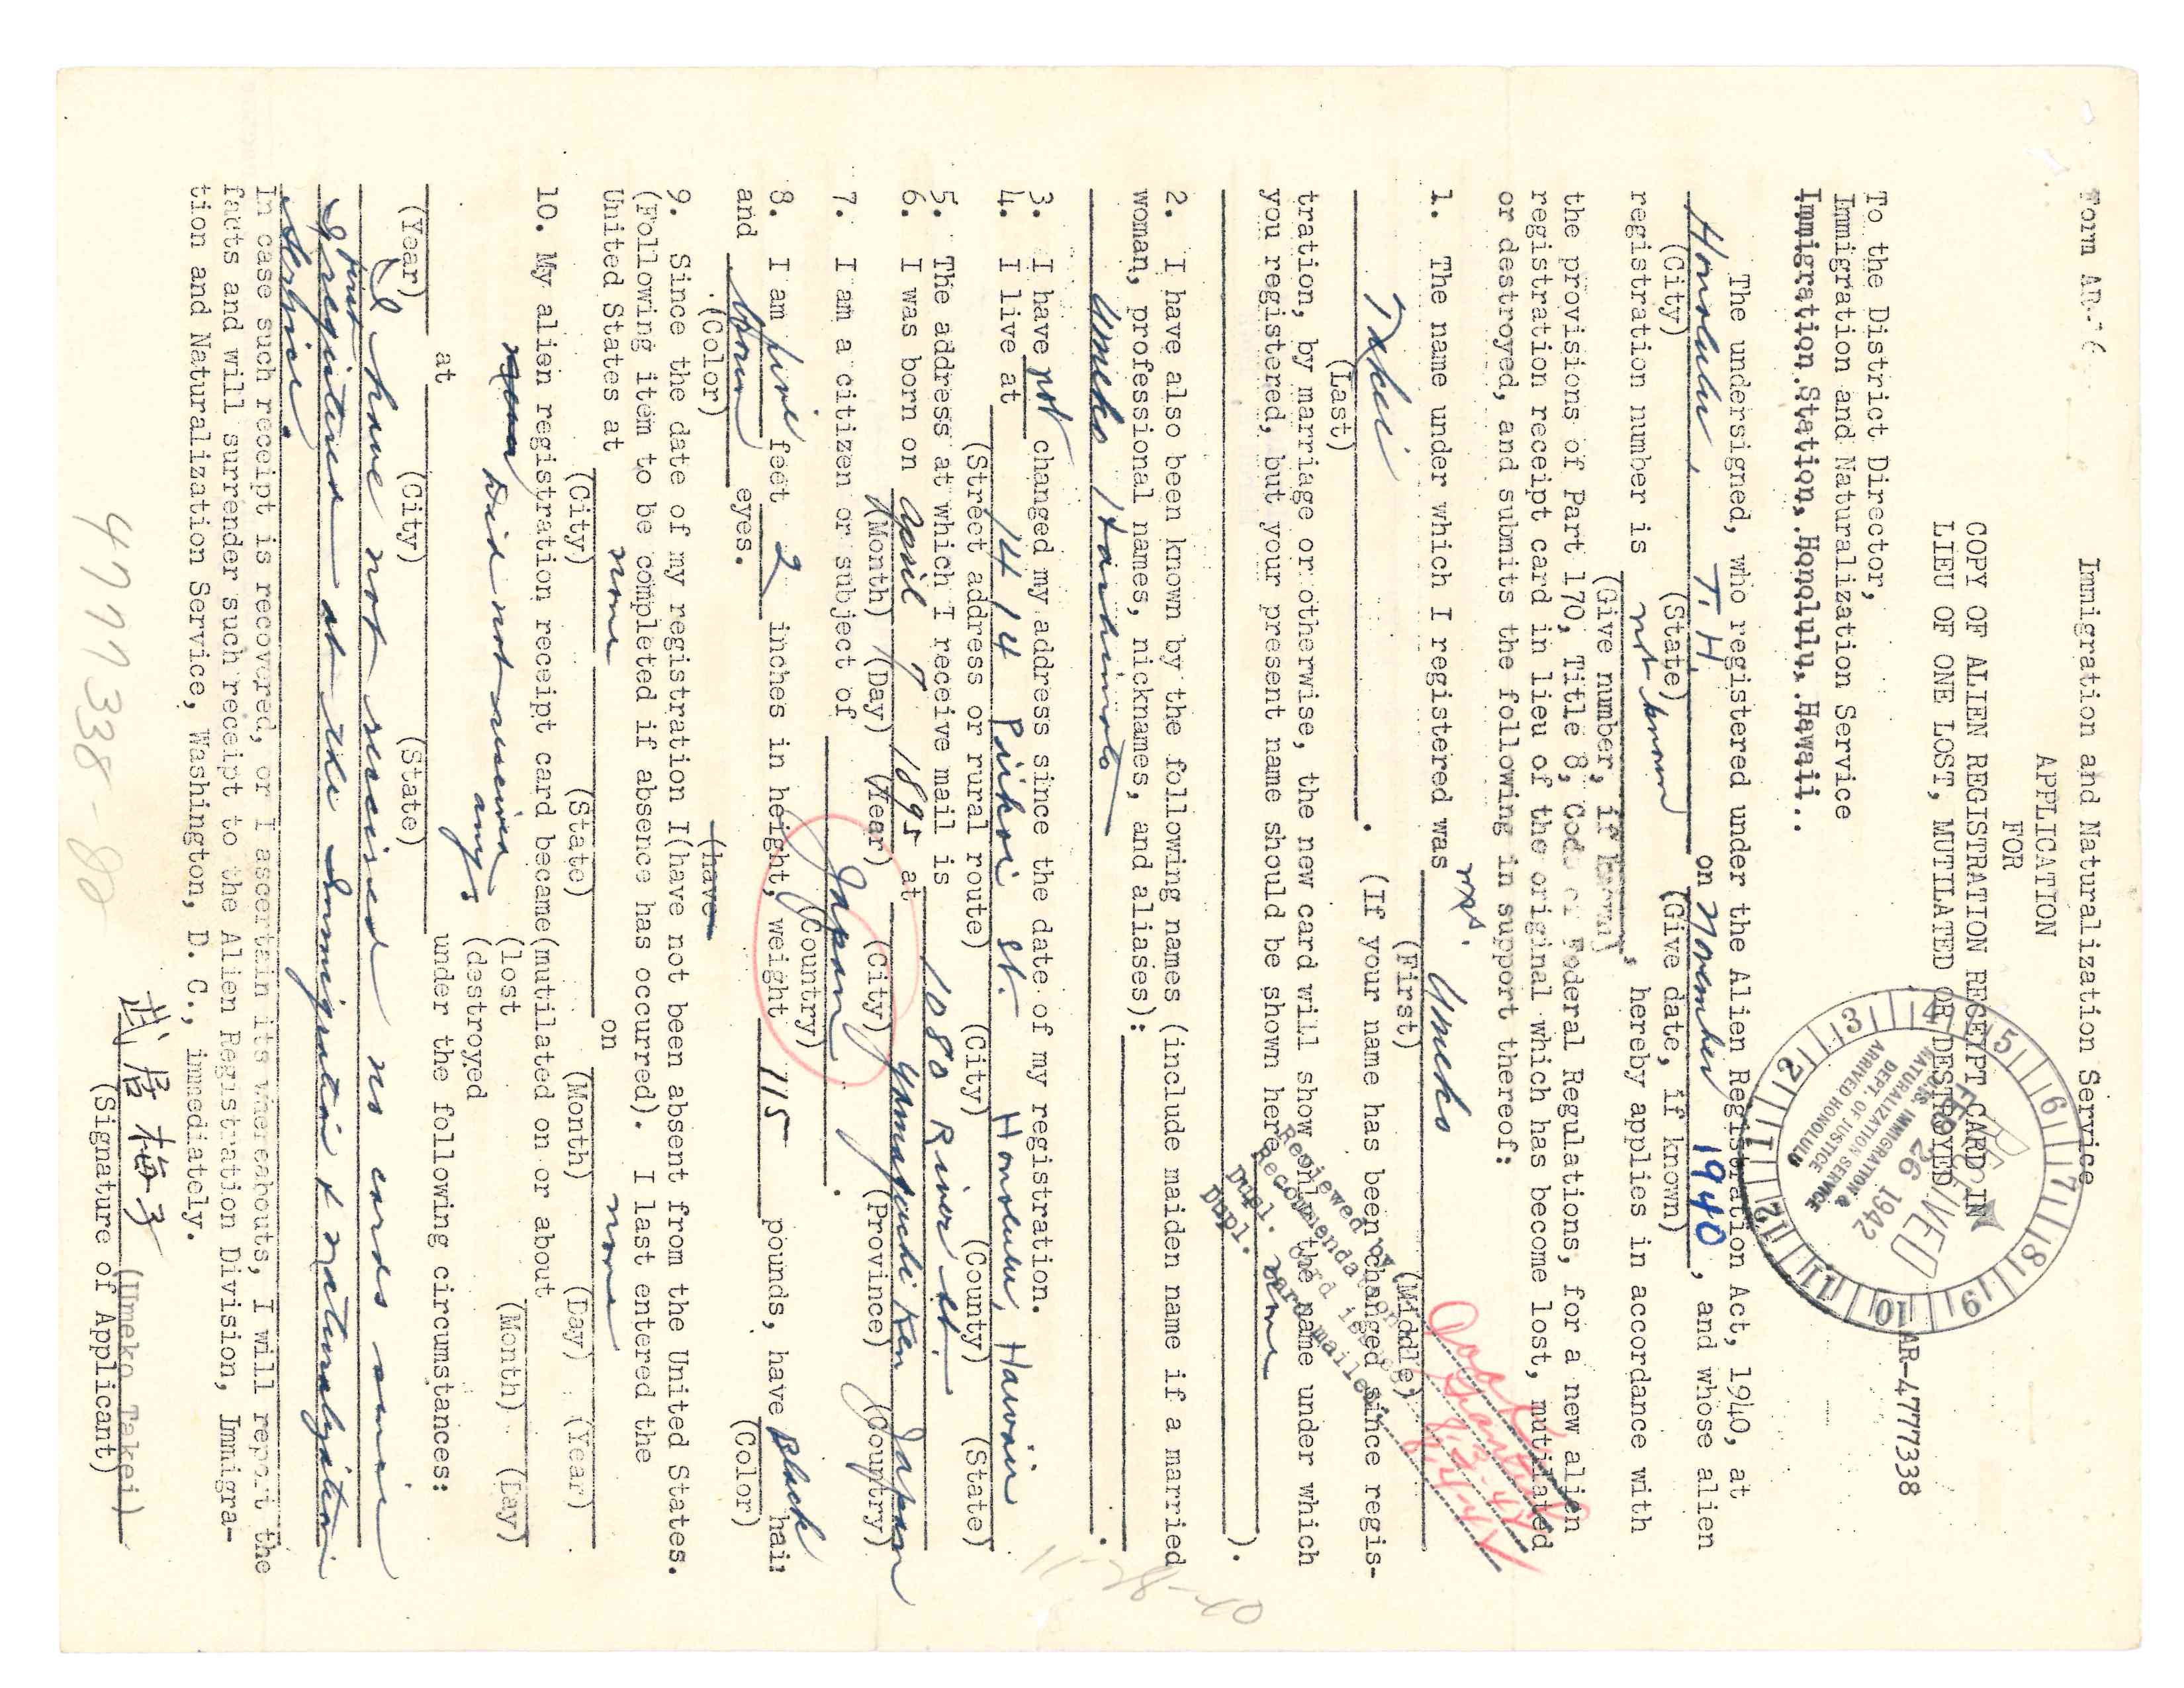 Form AR-16
Immigration and Naturalization Service
APPLICATION
FOR
COPY OF ALIEN REGISTRATION RECEIPT CARD IN
LIEU OF ONE LOST, MUTILATED OR DESTROYED
6 7 8 9 10 11 12 1 2 3 4 5
RECEIVED
FEB 26 1942
U.S. IMMIGRATION &
NATURALIZATION SERVICE
DEPT. OF JUSTICE
ARRIVED HONOLULU
AR-4777338
To the District Director,
Immigration and Naturalization Service
Immigration Station, Honolulu, Hawaii..
The undersigned, who registered under the Alien Registration Act, 1940, at
Honolulu, T. H. on November 1940, and whose alien
(City) (State) (Give date, if known)
registration number is not known, hereby applies in accordance with
(Give number, if known)
the provisions of Part 170, Title 8, Code of Federal Regulations, for a new alien
registration receipt card in lieu of the original which has become lost, mutilated
or destroyed, and submits the following in support thereof:
1. The name under which I registered was Mrs. Umeko
(First) (Middle)
Takei. (If your name has been changed since regis-
(Last)
tration, by marriage or otherwise, the new card will show only the name under which
you registered, but your present name should be shown here none
).
Reviewed by
Recommendation
Dupl. card issued
Dupl. card mailed
8-3-42
8-4-42
2. I have also been known by the following names (include maiden name if a married
woman, professional names, nicknames, and aliases):
Umeko Hashimoto.
3. I have not changed my address since the date of my registration.
4. I live at 1414 Piikoi St. Honolulu, Hawaii
(Street address or rural route) (City) (County) (State)
5. The address at which I receive mail is 1080 River St.
6. I was born on April 7 1895 at Yamaguchi Ken Japan
(Month) (Day) (Year) (City) (Province) (Country)
7. I am a citizen or subject of Japan.
(Country)
8. I am five feet 2 inches in height, weight 115 pounds, have Black hair
and brown eyes. (Color)
(Color) (have
9. Since the date of my registration I(have not been absent from the United States.
(Following item to be completed if absence has occurred). I last entered the
United States at none on none
(City) (State) (Month) (Day) (Year)
10. My alien registration receipt card became(mutilated on or about
Did not received (lost (Month) (Day)
any. (destroyed
at under the following circumstances:
(Year) (City) (State)
I have not received no cards since
first
I registered at the Immigration & Naturalization
Service.
In case such receipt is recovered, or I ascertain its whereabouts, I will report the
facts and will surrender such receipt to the Alien Registration Division, Immigra-
tion and Naturalization Service, Washington, D. C., immediately.
武居梅子 (Umeko Takei)
(Signature of Applicant)
4777338-